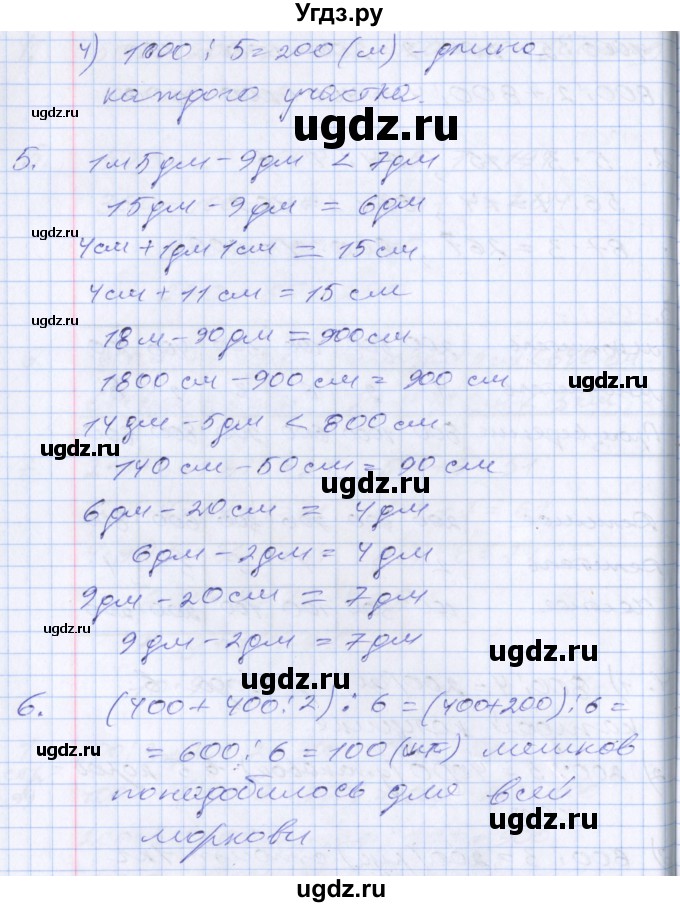 Угдз.ру
4) 1000 : 5 = 200 (м) - длина
каждого участка.
ugdz.ru
ugdz.ru
ugdz.ru
5. 1м 5дм - 9дм < 7дм
15дм - 9дм = 6дм
ugdz.ru
4см + 1дм 1см = 15см
ugdz.ru
4см + 11см = 15см
ugdz.ru
18м - 90дм = 900см
1800см - 900см = 900см
ugdz.ru
14дм - 5дм < 800см.
ugdz.ru
140см - 50см = 90см
ugdz.ru
6дм - 20см = 4дм
ugdz.ru
6дм - 2дм = 4дм
9дм - 20см = 7дм
ugdz.ru
9дм - 2дм = 7дм
ugdz.ru
ugdz.ru
6. (400 + 400 : 2) : 6 = (400 + 200) : 6 =
ugdz.ru
= 600 : 6 = 100 (шт) мешков
понадобилось для всей
ugdz.ru
моркови
ugdz.ru
ugdz.ru